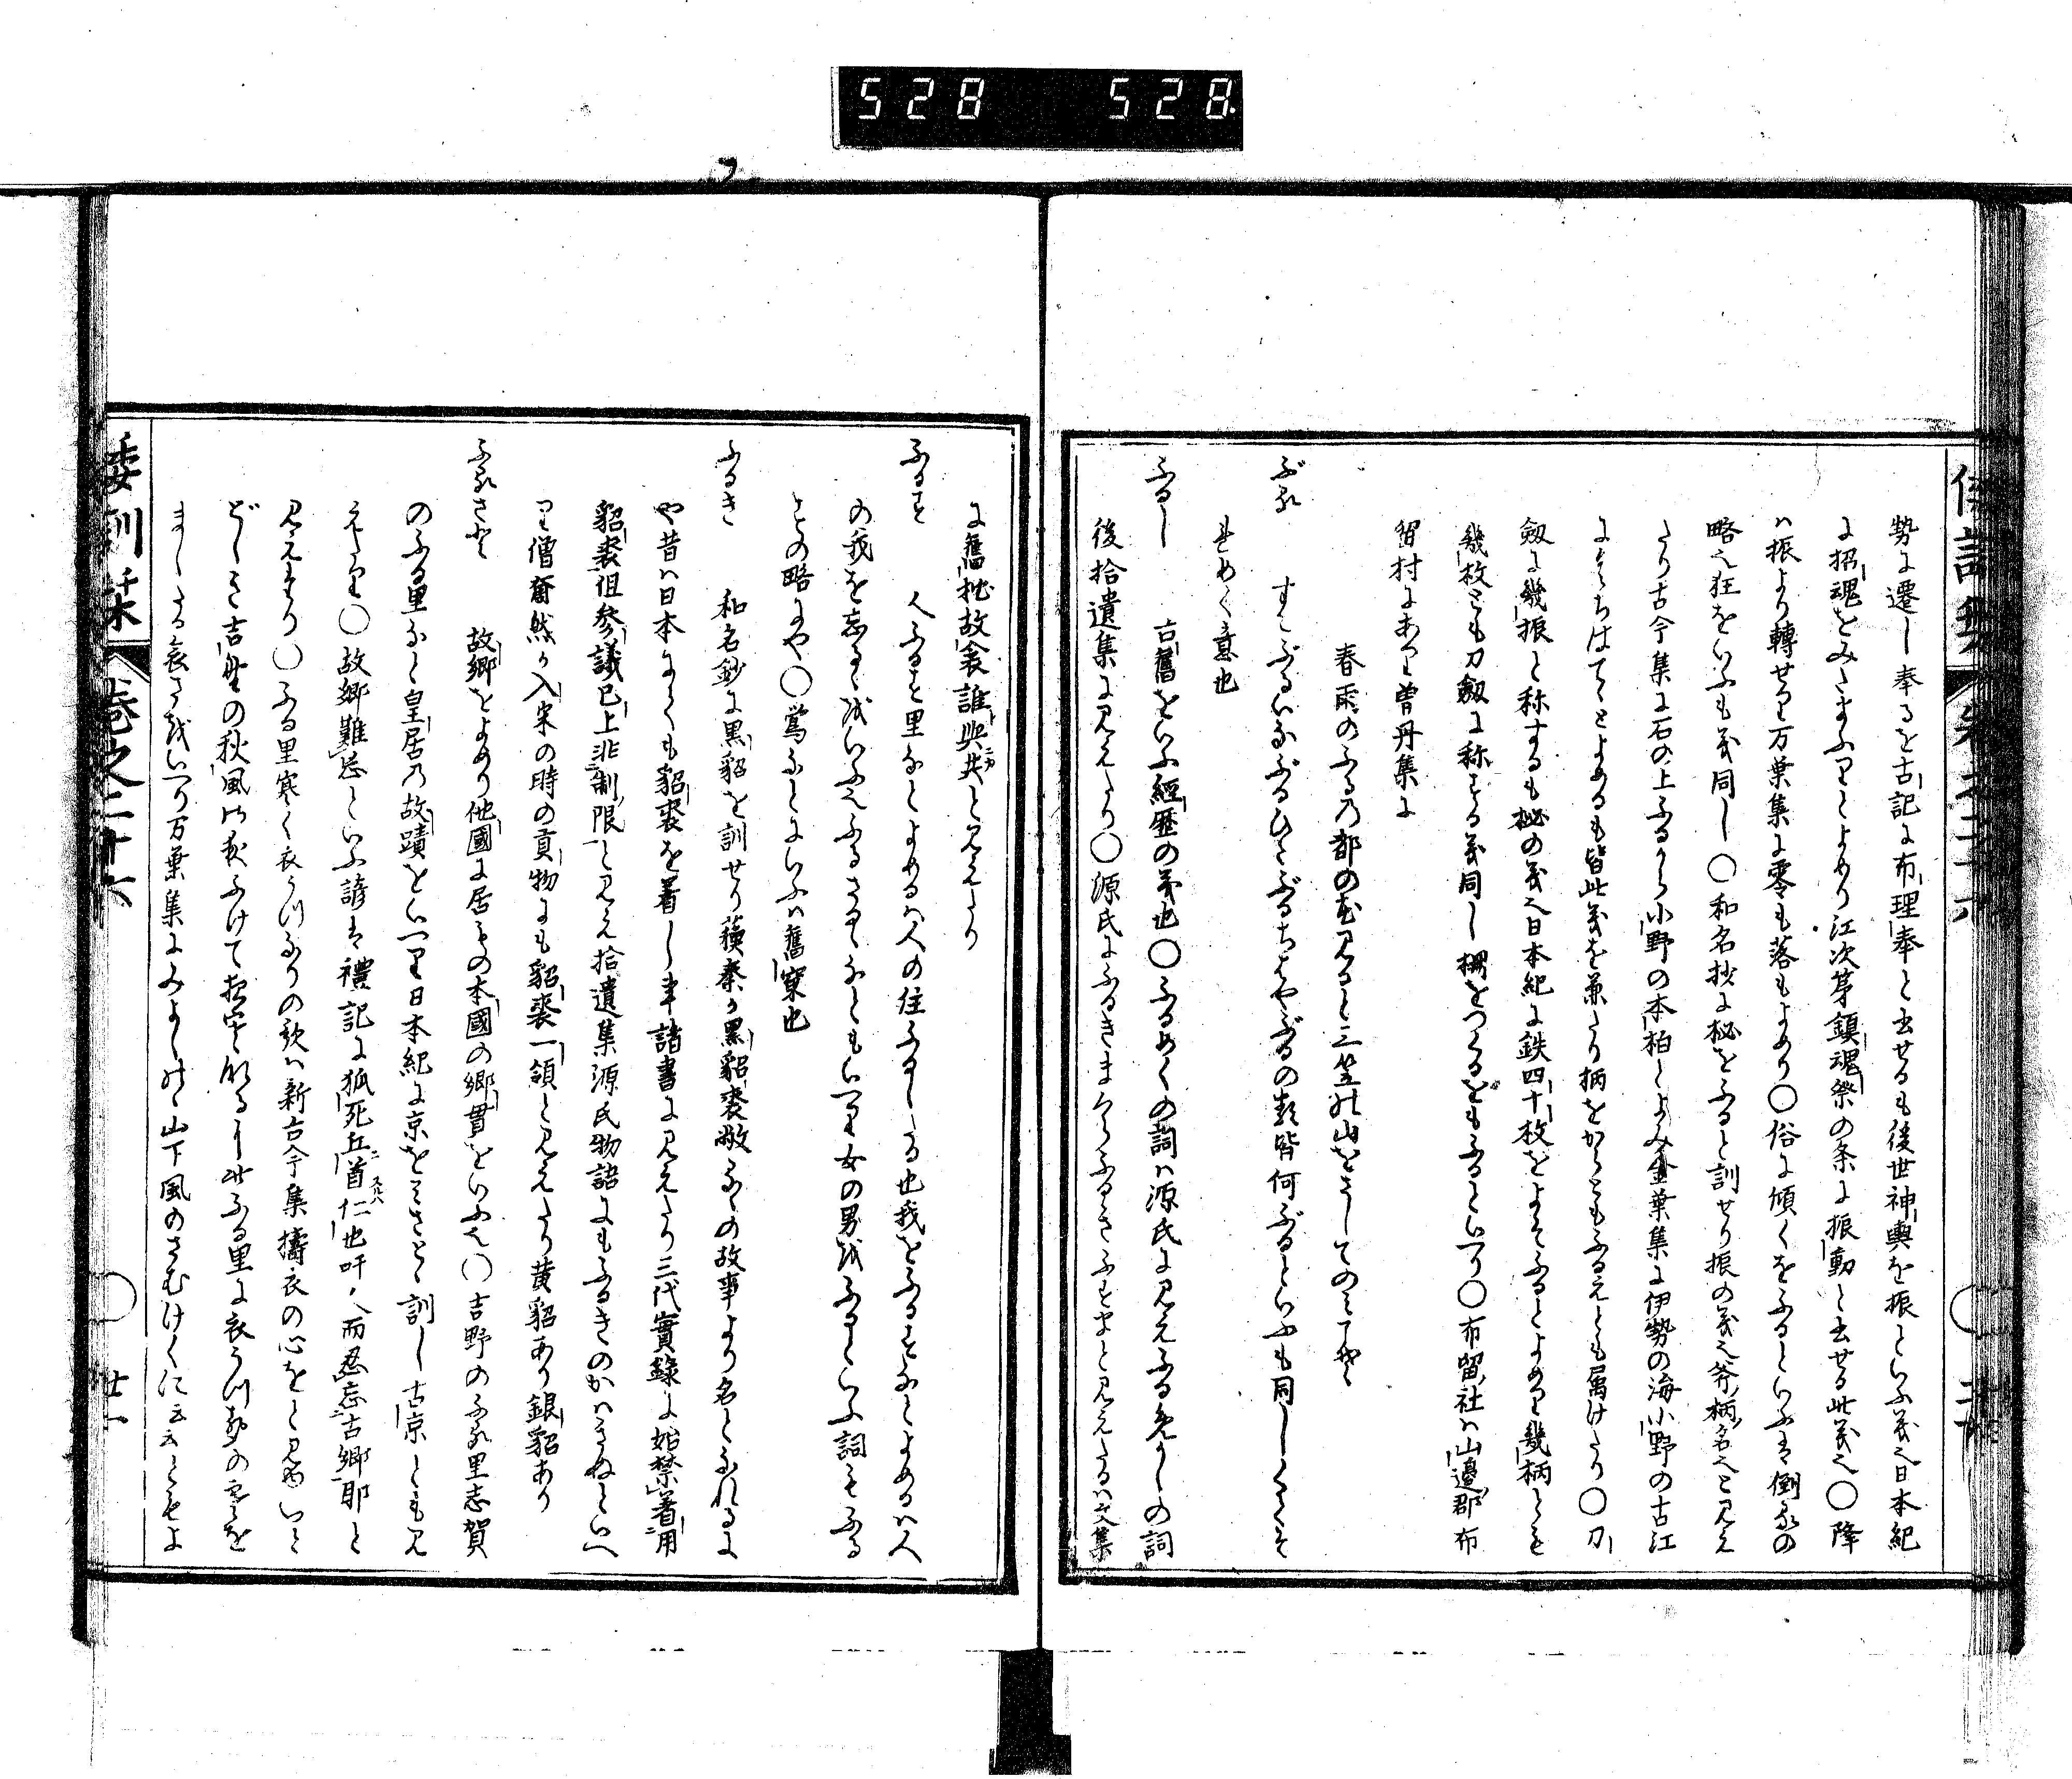 528 528
勢に遷し奉るを古記に布理奉と書せるも後世神輿を振といふ義也日本紀
に招魂をみたまふりとよめり江次第鎮魂祭の条に振動と書せる此義也〇降
ハ振より轉せり万葉集に零も落もよめり〇俗に傾くをふるといふは倒るの
略也狂をいふも義同し〇和名抄に柲をふると訓せり振の義也斧柄名也と見え
たり古今集に石の上ふるから小野の本柏とよみ金葉集に伊勢の海小野の古江
にくちはてゝとよめるも皆此義を兼たり柄をからともふるえとも属けたり〇刀
劔に幾振と称するも柲の義也日本紀に鉄四十枚をよそふるとよめり幾柄とも
幾枚とも刀劔に称する義同し 柵をつくるをもふるといへり〇布留社ハ山邊郡布
留村にあり曽丹集に
春雨のふるの都の花見ると三笠の山をさしてのミ
ぶる すこぶるいなぶるひたぶるちはやぶるの類皆何ぶるといふも同し
めく意也
ふるし 古舊をいふ經歴の義也〇ふるめくの詞ハ源氏に見えふるめかしの詞
後拾遺集に見えたり〇源氏にふるきまくらふるきふすまと見えたるハ文集
に舊枕故衾誰與共と見えたり
ふるす 人ふるす里なとよめるハ人の住ふるしたる也我をふるすなとよめるハ人
の我を忘るゝをいふ也ふるさるゝなともいへり女の男をふるといふ詞もふる
すの略にや〇鶯なとにいふハ舊窠也
ふるき 和名鈔に黒貂を訓せり蘓秦か黒貂裘敝るゝの故事より名となれるに
や昔ハ日本にても貂裘を着し事諸書に見えたり三代實録に始禁着用
貂裘但参議已上非制限と見え拾遺集源氏物語にもふるきのかハきぬといへ
り僧奝然か入宋の時の貢物にも貂裘一領と見えたり黄貂あり銀貂あり
ふるさと 故郷をよめり他國に居もの本國の郷貫をいふ也〇吉野のふる里志賀
のふる里なと皇居の故蹟をいへり日本紀に京をミさとゝ訓し古京とも見
えたり〇故郷難忘といふ諺は禮記に狐死丘首仁也吁人而忍忘古郷耶と
見えたり〇ふる里寒く衣うつなりの歌ハ新古今集擣衣の心をと見ゆいと
どしき吉野の秋風小夜ふけて
ましたる哀さをいへり万葉集にみよしのゝ山下風のさむけくに云云ともよ
倭訓栞 巻之二十六 廿一